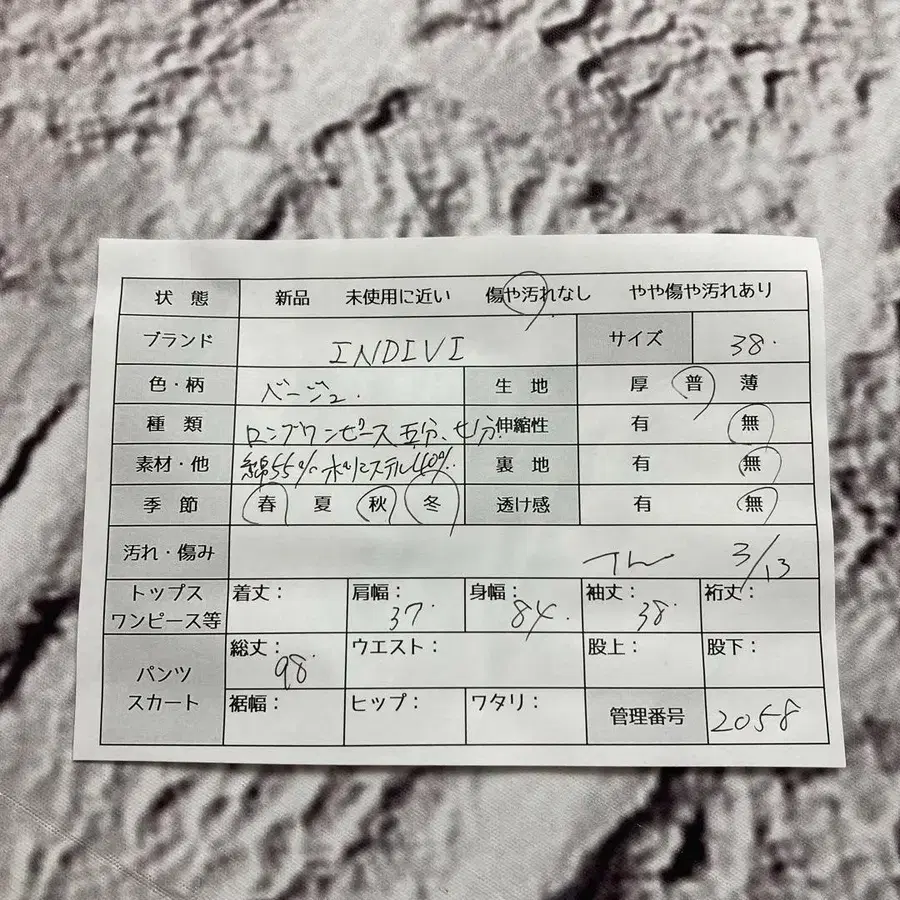 状態 新品 未使用に近い 傷や汚れなし やや傷や汚れあり
ブランド INDIVI サイズ 38.
色・柄 ベージュ. 生地 厚 普 薄
種類 ロングワンピース 五分、七分 伸縮性 有 無
素材・他 綿55% ポリエステル40%. 裏地 有 無
季節 春 夏 秋 冬 透け感 有 無
汚れ・傷み 3/13
トップス 着丈: 肩幅: 身幅: 袖丈: 裄丈:
ワンピース等 37. 84. 38.
パンツ 総丈: ウエスト: 股上: 股下:
98.
スカート 裾幅: ヒップ: ワタリ: 管理番号 2058